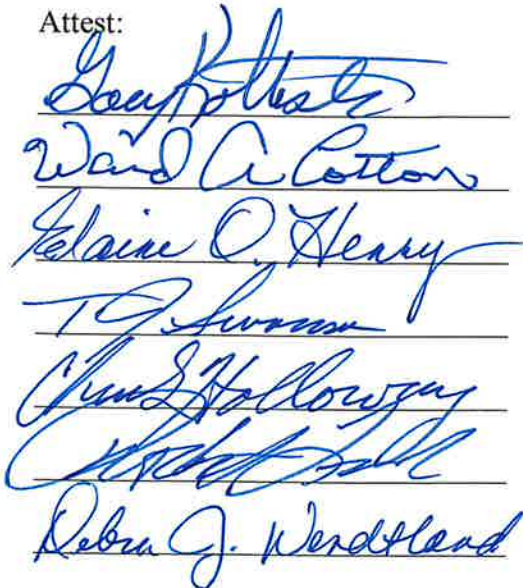 Attest:
Gary
Ward A Cotton
Elaine O. Henry
T J Swanson
Holloway
Debra J. Wendtland